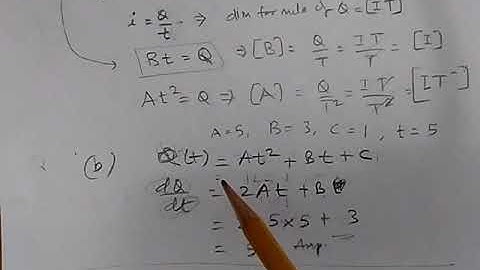 i = Q/t ⇒ dim formula of Q = [IT]
Bt = Q ⇒ [B] = Q/T = IT/T = [I]
At² = Q ⇒ [A] = Q/T² = IT/T² = [IT⁻¹]
A = 5, B = 3, C = 1, t = 5
(b) Q(t) = At² + Bt + C
dQ/dt = 2At + B
5 × 5 + 3
= 5 Amp.